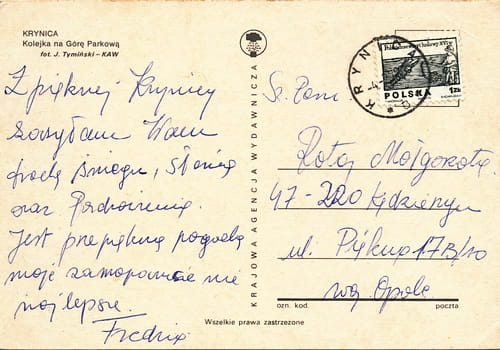 KRYNICA
Kolejka na Górę Parkową
fot. J. Tymiński — KAW
Z pięknej Krynicy
zasyłam Wam
trochę śniegu, słońca
oraz Pozdrowienia.
Jest przepiękna pogoda
moje samopoczucie nie
najlepsze.
KRAJOWA AGENCJA WYDAWNICZA
KRYNICA
POLSKA
1zł
Sz. Pani
Rotaj Małgorzata
47-220 Kędzierzyn
ul. Piękna 17B/10
woj Opole
ozn. kod.
poczta
Wszelkie prawa zastrzeżone